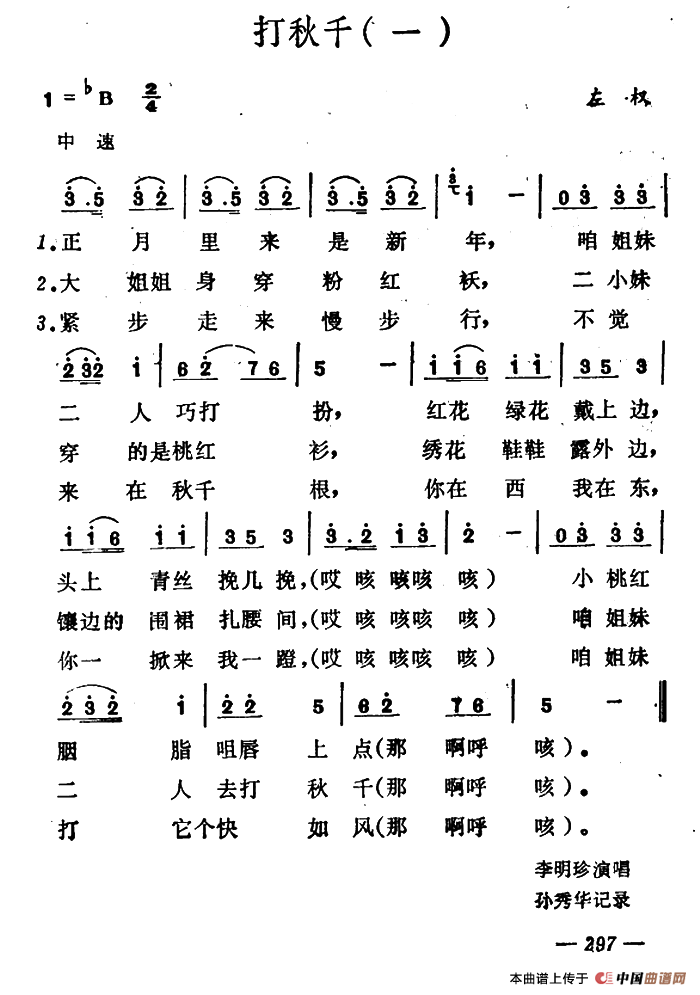 打秋千(一)
1=♭B 2/4 左权
中速
3.5 3 2 | 3.5 3 2 | 3.5 3 2 | 1 — | 0 3 3 3 |
1.正月里来是新年, 咱姐妹
2.大姐姐身穿粉红袄, 二小妹
3.紧步走来慢步行, 不觉
2 3 2 1 | 6 2 7 6 | 5 — | 1 1 6 1 1 | 3 5 3 |
二人巧打扮, 红花绿花戴上边,
穿的是桃红衫, 绣花鞋鞋露外边,
来在秋千根, 你在西我在东,
1 1 6 1 1 | 3 5 3 | 3.2 1 3 | 2 — | 0 3 3 3 |
头上青丝挽几挽,(哎咳咳咳咳)小桃红
镶边的围裙扎腰间,(哎咳咳咳咳)咱姐妹
你一掀来我一蹬,(哎咳咳咳咳)咱姐妹
2 3 2 1 | 2 2 5 | 6 2 7 6 | 5 — ‖
胭脂咀唇上点(那啊呼咳)。
二人去打秋千(那啊呼咳)。
打它个快如风(那啊呼咳)。
李明珍演唱
孙秀华记录
— 297 —
本曲谱上传于 中国曲谱网